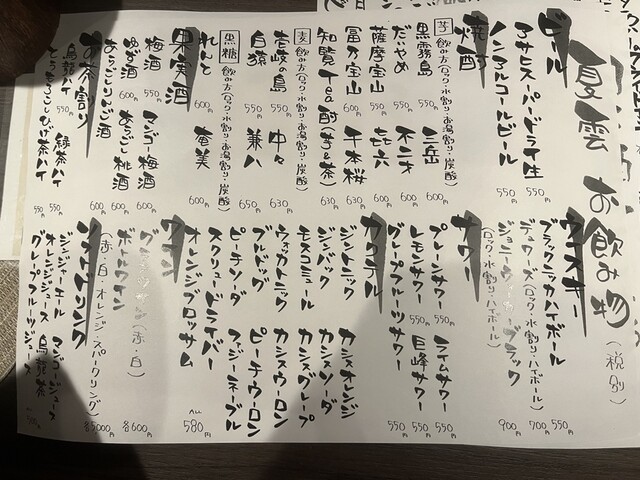 夏雲 お飲み物 (税別)
ビール
アサヒスーパードライ生 550円
ノンアルコールビール 550円
焼酎
芋 飲み方(ロック・水割り・お湯割り・炭酸)
黒霧島 550円
三岳 600円
だいやめ 550円
六二才
薩摩宝山 550円
㐂六
富乃宝山 600円
千本桜
知覧Tea酎(芋&茶) 630円
麦 飲み方(ロック・水割り・お湯割り・炭酸)
壱岐の島 550円
中々 630円
白猿 550円
兼八 650円
黒糖 飲み方(ロック・水割り・お湯割り・炭酸)
れんと 600円
奄美 600円
果実酒
梅酒 550円
マンゴー梅酒 600円
ゆず酒 600円
あらごし桃酒 600円
あらごしりんご酒 600円
お茶割り
烏龍ハイ 550円
緑茶ハイ 550円
とうもろこしひげ茶ハイ 550円
ウイスキー
ブラックニッカハイボール 550円
デュワーズ(ロック・水割り・ハイボール) 700円
ジョニーウォーカーブラック 900円
(ロック・水割り・ハイボール)
サワー
プレーンサワー 550円
ライムサワー 550円
レモンサワー 550円
巨峰サワー 550円
グレープフルーツサワー 550円
カクテル
ジントニック
カシスオレンジ
ジンバック
カシスソーダ
モスコミュール
カシスグレープ
ウォッカトニック
カシスウーロン
ブルドッグ
ピーチウーロン
ピーチソーダ
ファジーネーブル
スクリュードライバー
オレンジブロッサム
ALL 580円
ワイン
グラスワイン(赤・白) 各600円
ボトルワイン
(赤・白・オレンジ・スパークリング) 各5000円
ソフトドリンク
ジンジャーエール
マンゴージュース
オレンジジュース
烏龍茶
グレープフルーツジュース